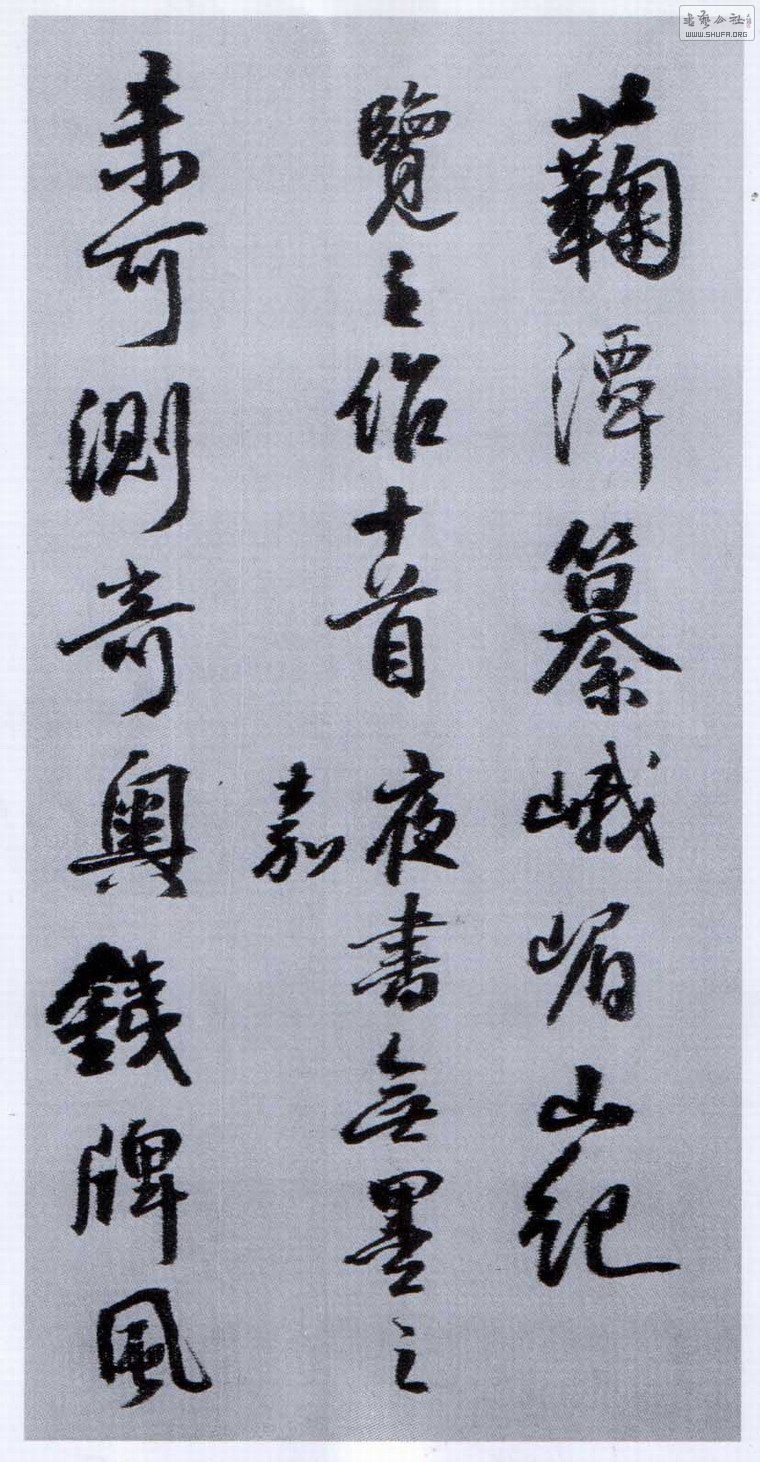 蘜潭纂峨嵋山紀
覽之十首夜書無墨之
嘉
未可測奇奧鐵牌風
書藝公社
WWW.SHUFA.ORG